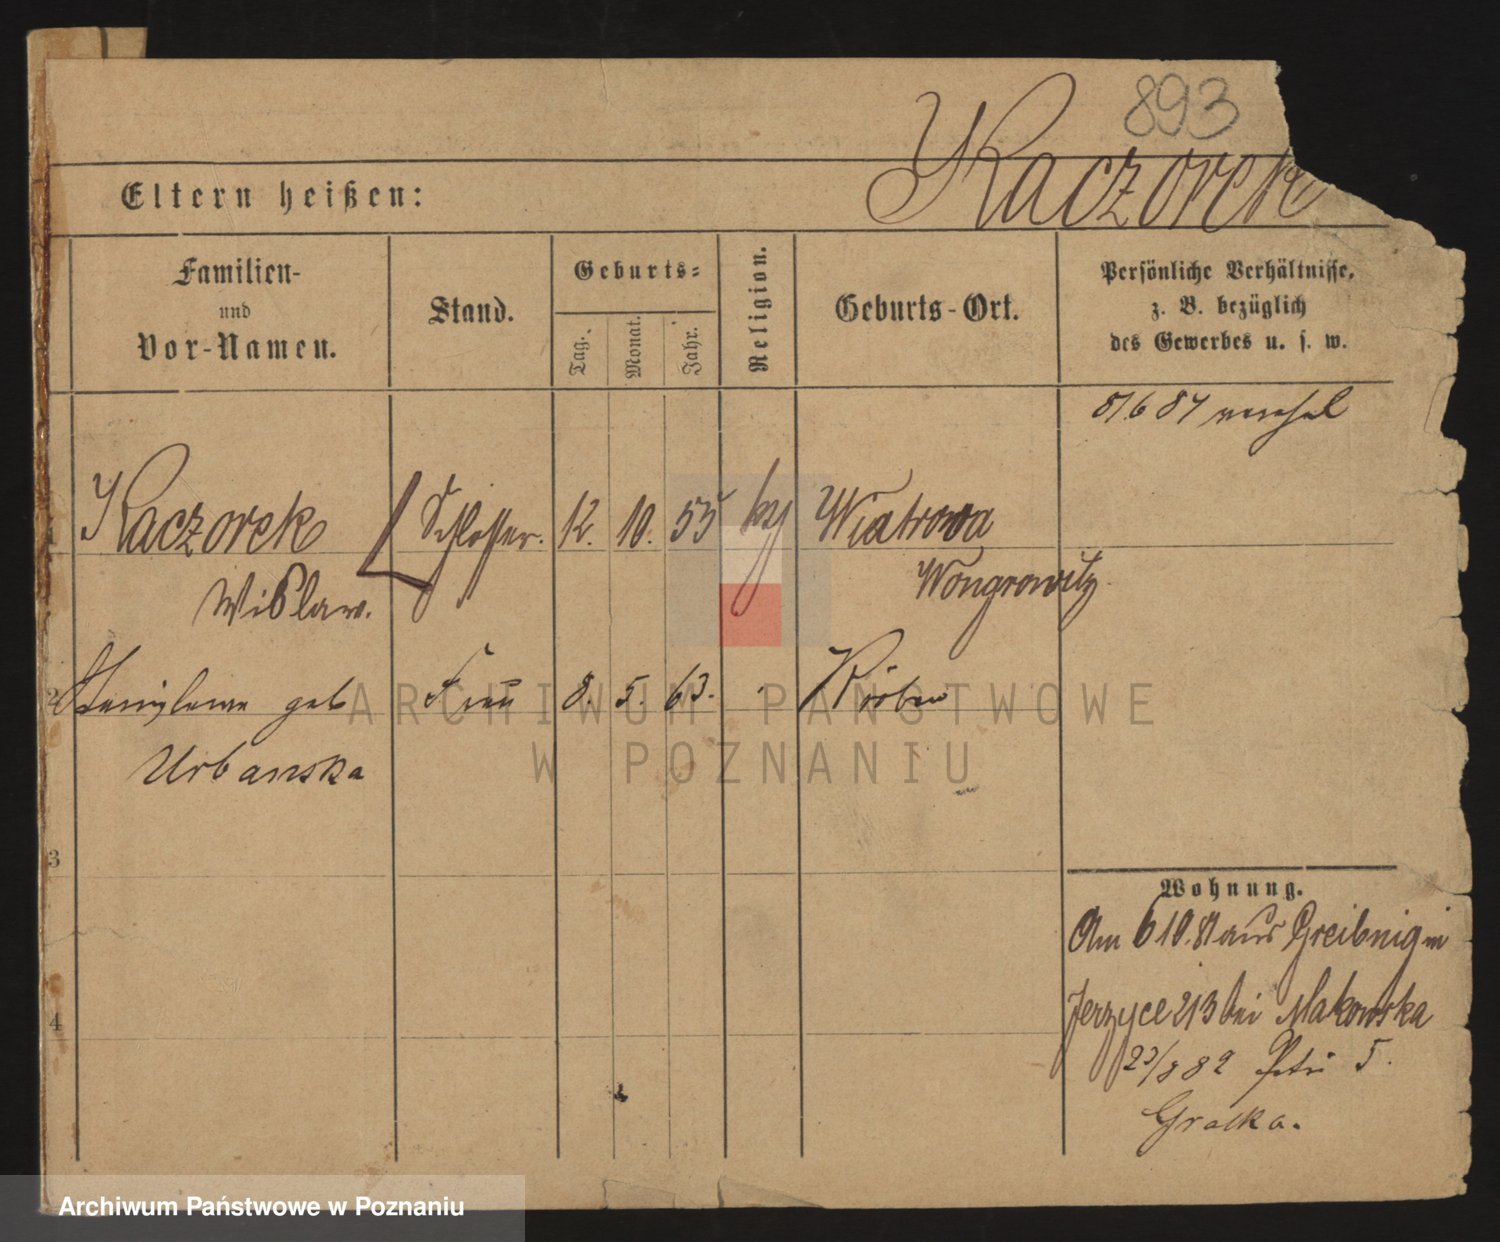 893
Kaczorek
Eltern heißen:
Familien-
und
Vor-Namen.
Stand.
Geburts-
Tag. Monat. Jahr.
Religion.
Geburts-Ort.
Persönliche Verhältnisse,
z. B. bezüglich
des Gewerbes u. s. w.
1 Kaczorek Schlosser. 12. 10. 55 Wiatrowa
Wongrowitz
Wislaw.
2 geb Frau 8. 5. 63. Kröben
Urbanska
3
4
Wohnung.
Am 6 10. 81 aus Greibnig in
Jerzyce 213 bei Makowska
23/8 82 Petri 5.
Gralka.
ARCHIWUM PAŃSTWOWE
W POZNANIU
Archiwum Państwowe w Poznaniu